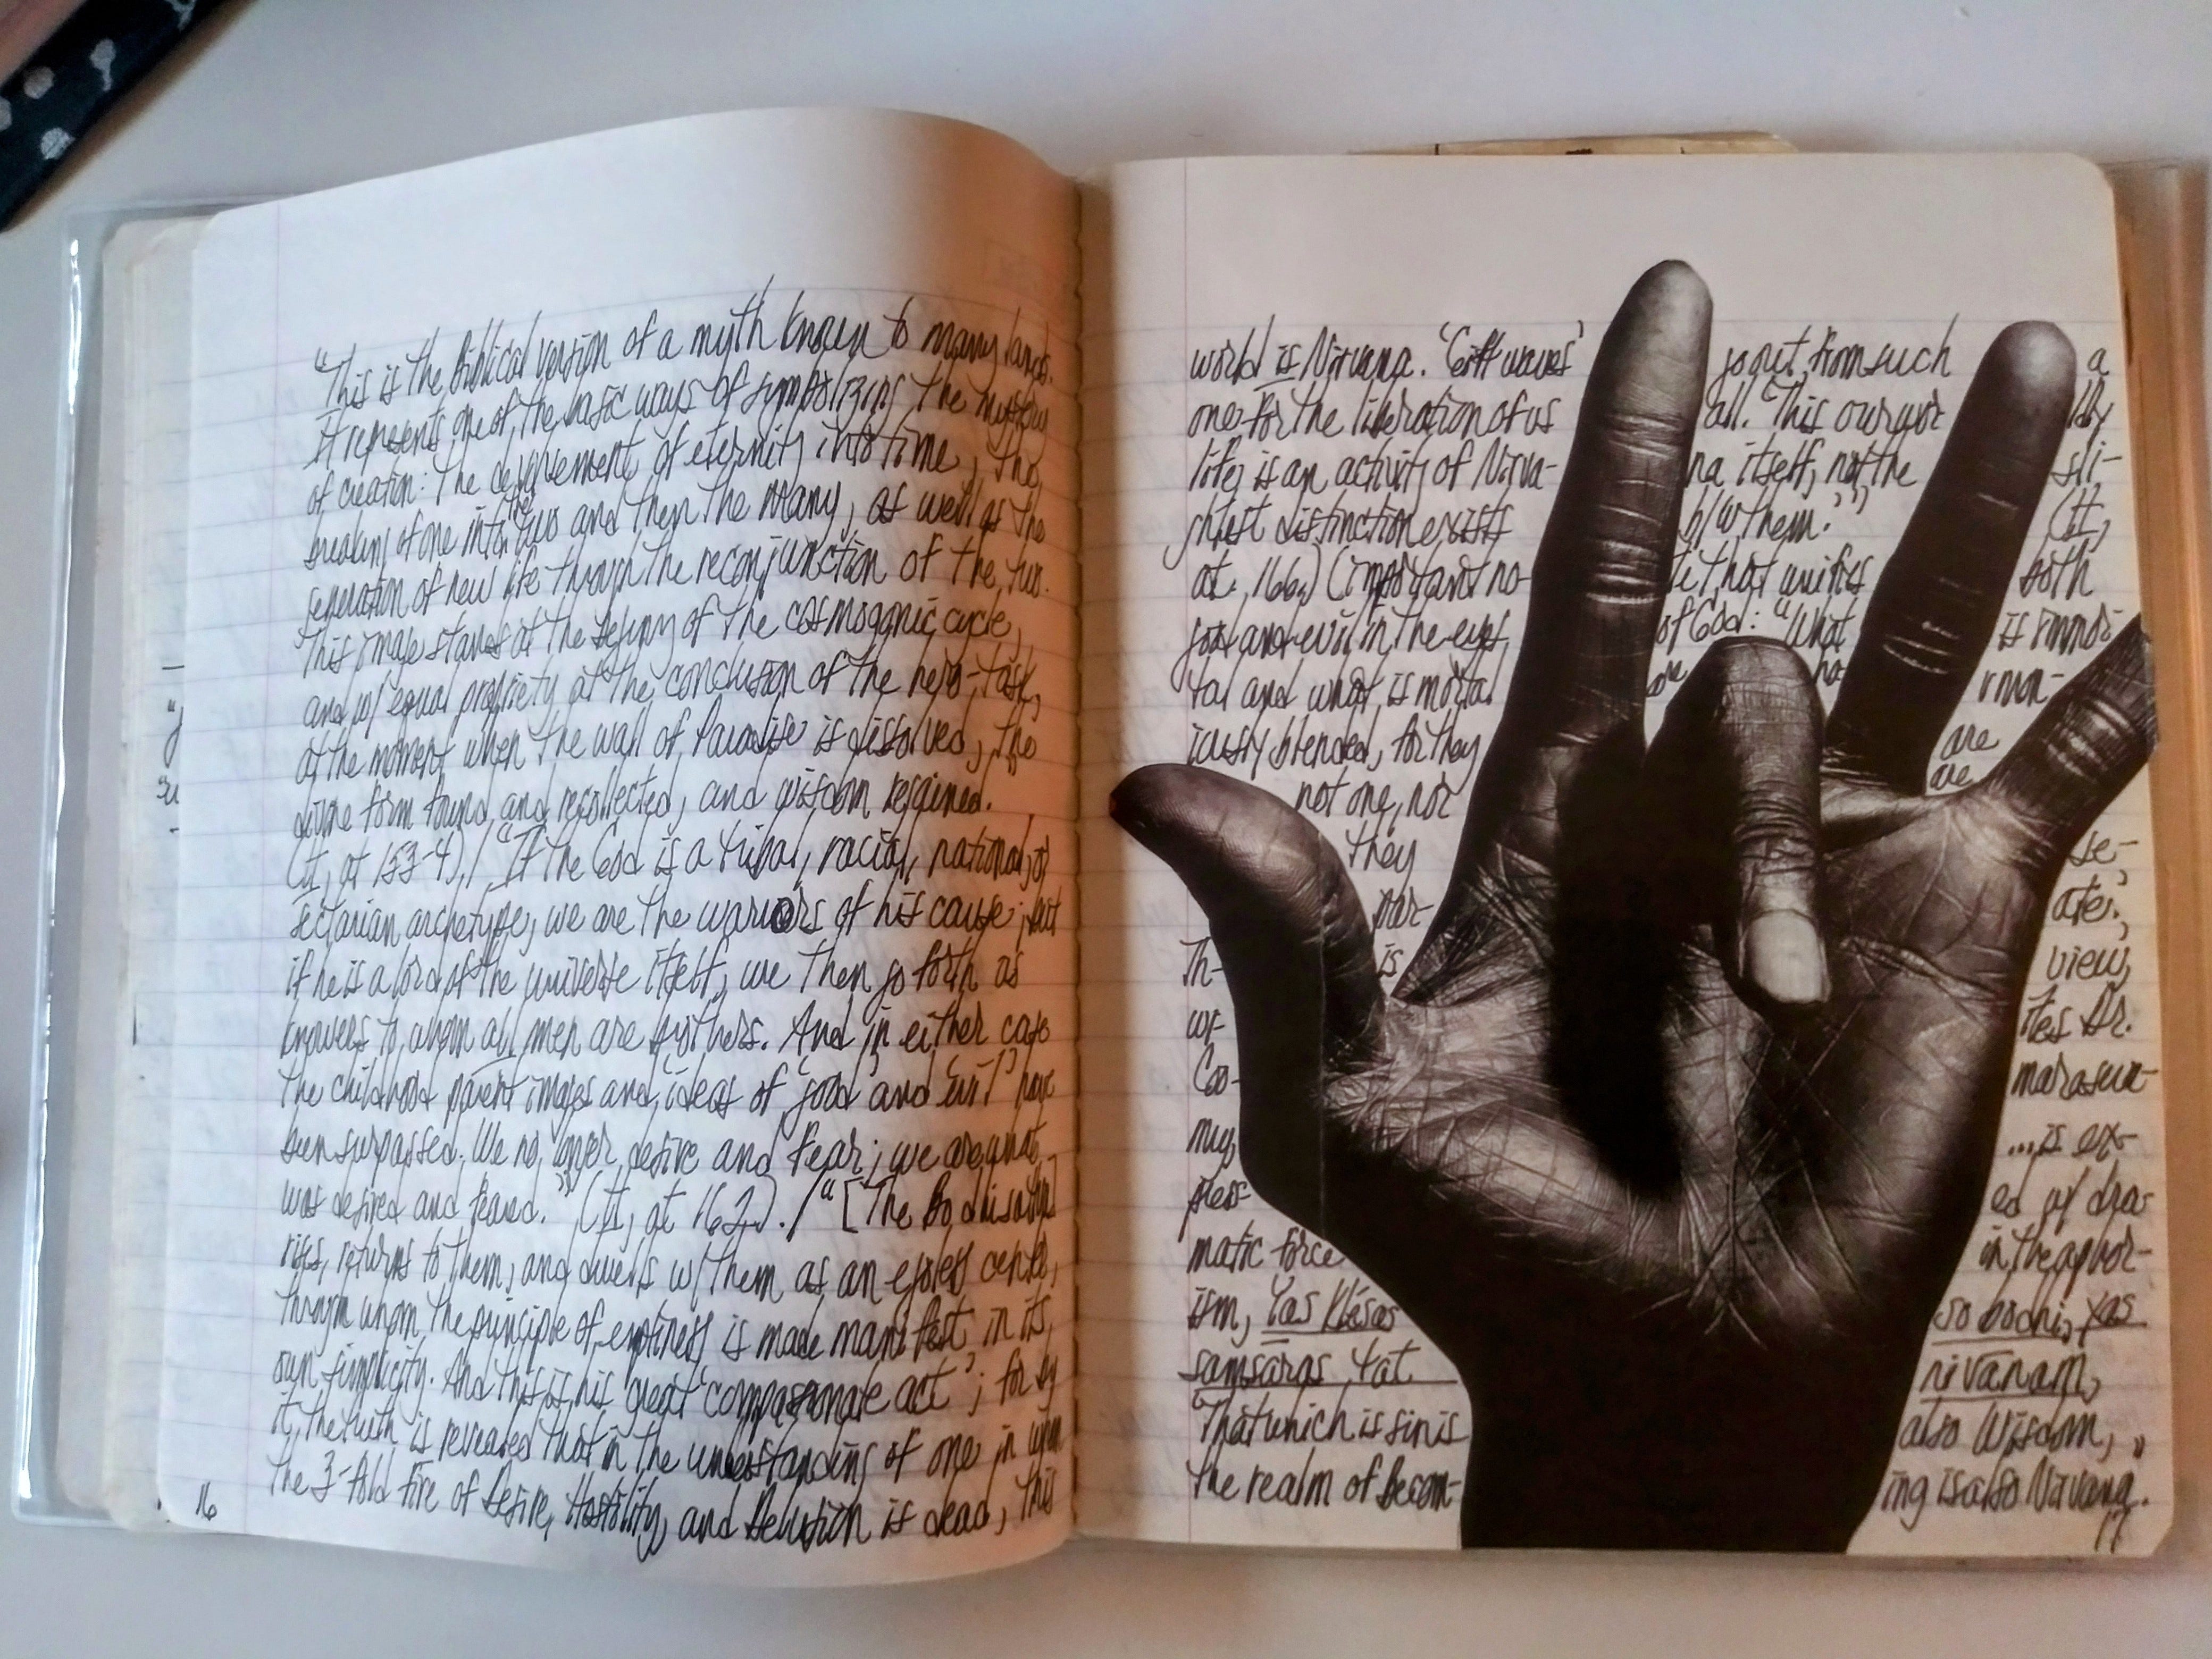 "This is the Biblical version of a myth known to many lands.
It represents one of the basic ways of symbolizing the mystery
of creation: the devolvement of eternity into time, the
breaking of one into the two and then the many, as well as the
generation of new life through the reconjunction of the two.
This image stands at the beginning of the cosmogonic cycle,
and w/ equal propriety at the conclusion of the hero-task,
at the moment when the wall of Paradise is dissolved, the
divine form found and recollected, and wisdom regained.
(It, at 153-4)./ "If the God is a tribal, racial, national, or
sectarian archetype, we are the warriors of his cause; but
if he is a lord of the universe itself, we then go forth as
knowers to whom all men are brothers. And in either case
the childhood parent images and ideas of 'good' and 'evil' have
been surpassed. We no longer desire and fear; we are what
was desired and feared." (It, at 162)./ "[The Bodhisattva]
rises, returns to them, and dwells w/ them as an egoless center,
through whom the principle of emptiness is made manifest in its
own simplicity. And this is his 'great compassionate act'; for by
it, the truth is revealed that in the understanding of one in whom
the 3-fold fire of Desire, Hostility, and Delusion is dead, this
16
world is Nirvana. 'Gift waves' go out from such a
one for the liberation of us all. 'This our worldly
life is an activity of Nirva- na itself, not the sli-
ghtest distinction exists b/w them.'" (It,
at 166.) (important no- te that unifies both
good and evil in the eyes of God: "What is immor-
tal and what is mortal are ha rmon-
iously blended, for they are
not one, nor are
they se-
par- ate.'
Th- is view,
wr- ites Dr.
Coo- maraswa-
my, ...is ex-
press- ed w/ dra-
matic force in the aphor-
ism, Yas klésas so bodhi, yas
samsāras tat nirvanam,
'That which is sin is also Wisdom,
the realm of Becom- ing is also Nirvana.'"
17